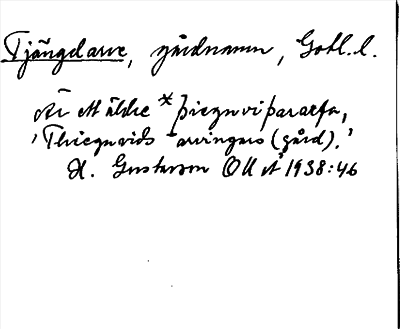 Tjängdarve, gårdnamn, Gotl. l.
Av ett äldre *þiegnviþararfa,
'Thiegnvids arvingars (gård).'
H. Gustavson OUÅ 1938:46